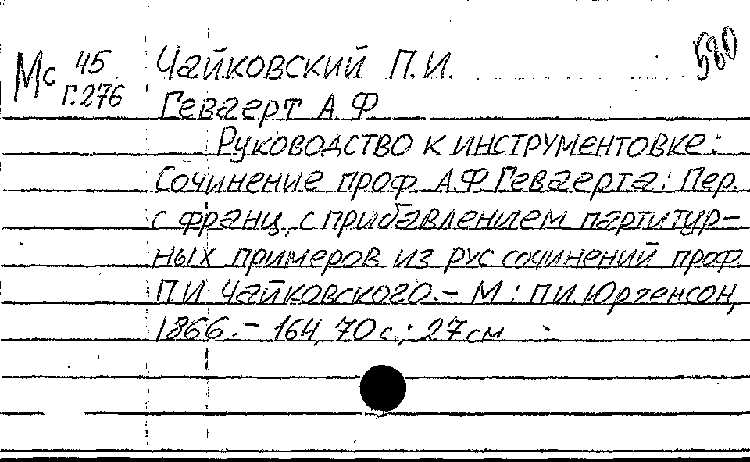 580
Мс 45 Чайковский П.И.
Г.276 Геваерт А.Ф.
Руководство к инструментовке:
Сочинение проф. А.Ф Геваерта: Пер.
с франц., с прибавлением партитур-
ных примеров из рус сочинений проф.
П.И Чайковского.- М: П.И. Юргенсон,
1866.- 164, 70 с.; 27 см